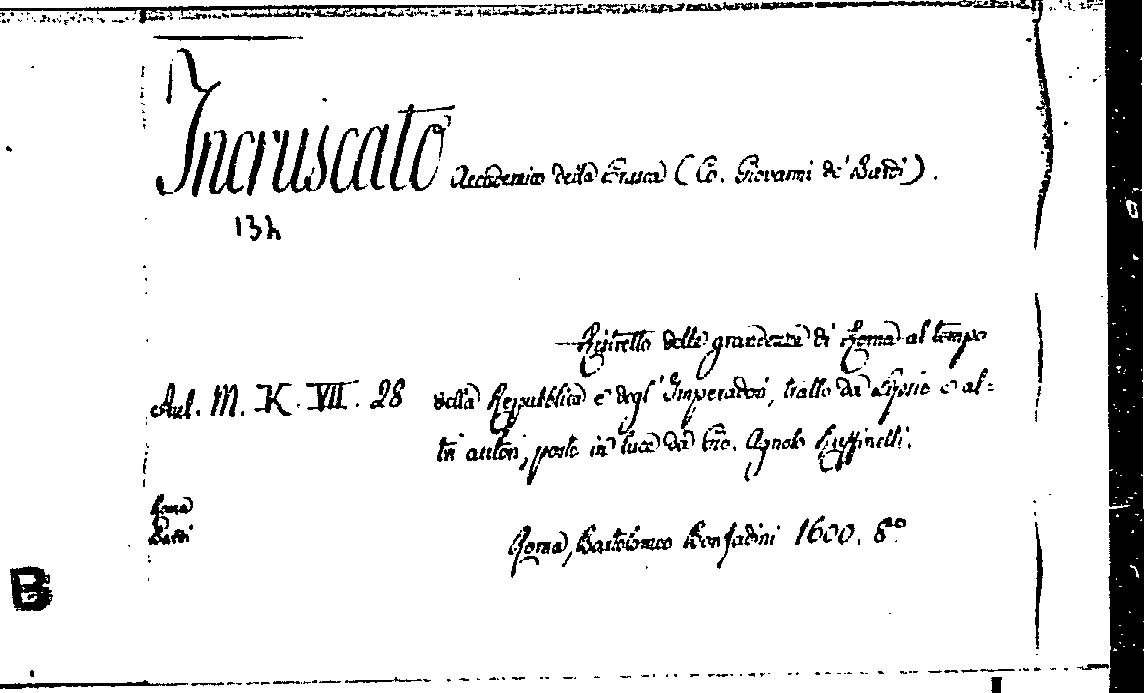 Incruscato Accademico della Crusca (Co. Giovanni de' Bardi).
13h
Ristretto delle grandezze di Roma al tempo
Aul. M. K. VII. 28 della Repubblica e degl' Imperadori, tratto da Lipsio e al=
tri autori, posto in luce da Gio. Agnolo Ruffinelli.
Roma
Bardi
Roma, Bartolomeo Bonfadini 1600. 8º
B